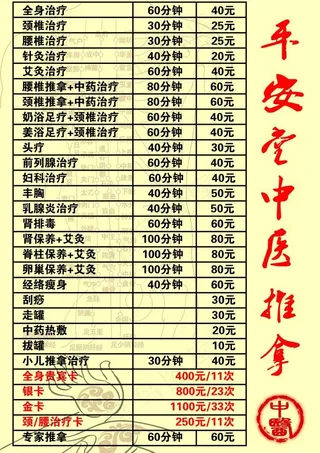 全身治疗 60分钟 40元
颈椎治疗 30分钟 25元
腰椎治疗 30分钟 25元
针灸治疗 40分钟 20元
艾灸治疗 60分钟 40元
腰椎推拿+中药治疗 80分钟 60元
颈椎推拿+中药治疗 80分钟 60元
奶浴足疗+颈椎治疗 60分钟 40元
姜浴足疗+颈椎治疗 60分钟 40元
头疗 40分钟 30元
前列腺治疗 60分钟 60元
妇科治疗 60分钟 60元
丰胸 40分钟 50元
乳腺炎治疗 40分钟 50元
肾排毒 60分钟 60元
肾保养+艾灸 100分钟 80元
脊柱保养+艾灸 100分钟 80元
卵巢保养+艾灸 100分钟 80元
经络瘦身 40分钟 60元
刮痧 30元
走罐 30元
中药热敷 20元
拔罐 10元
小儿推拿治疗 30分钟 40元
全身贵宾卡 400元/11次
银卡 800元/23次
金卡 1100元/33次
颈/腰治疗卡 250元/11次
专家推拿 60分钟 60元
平安堂中医推拿
中醫